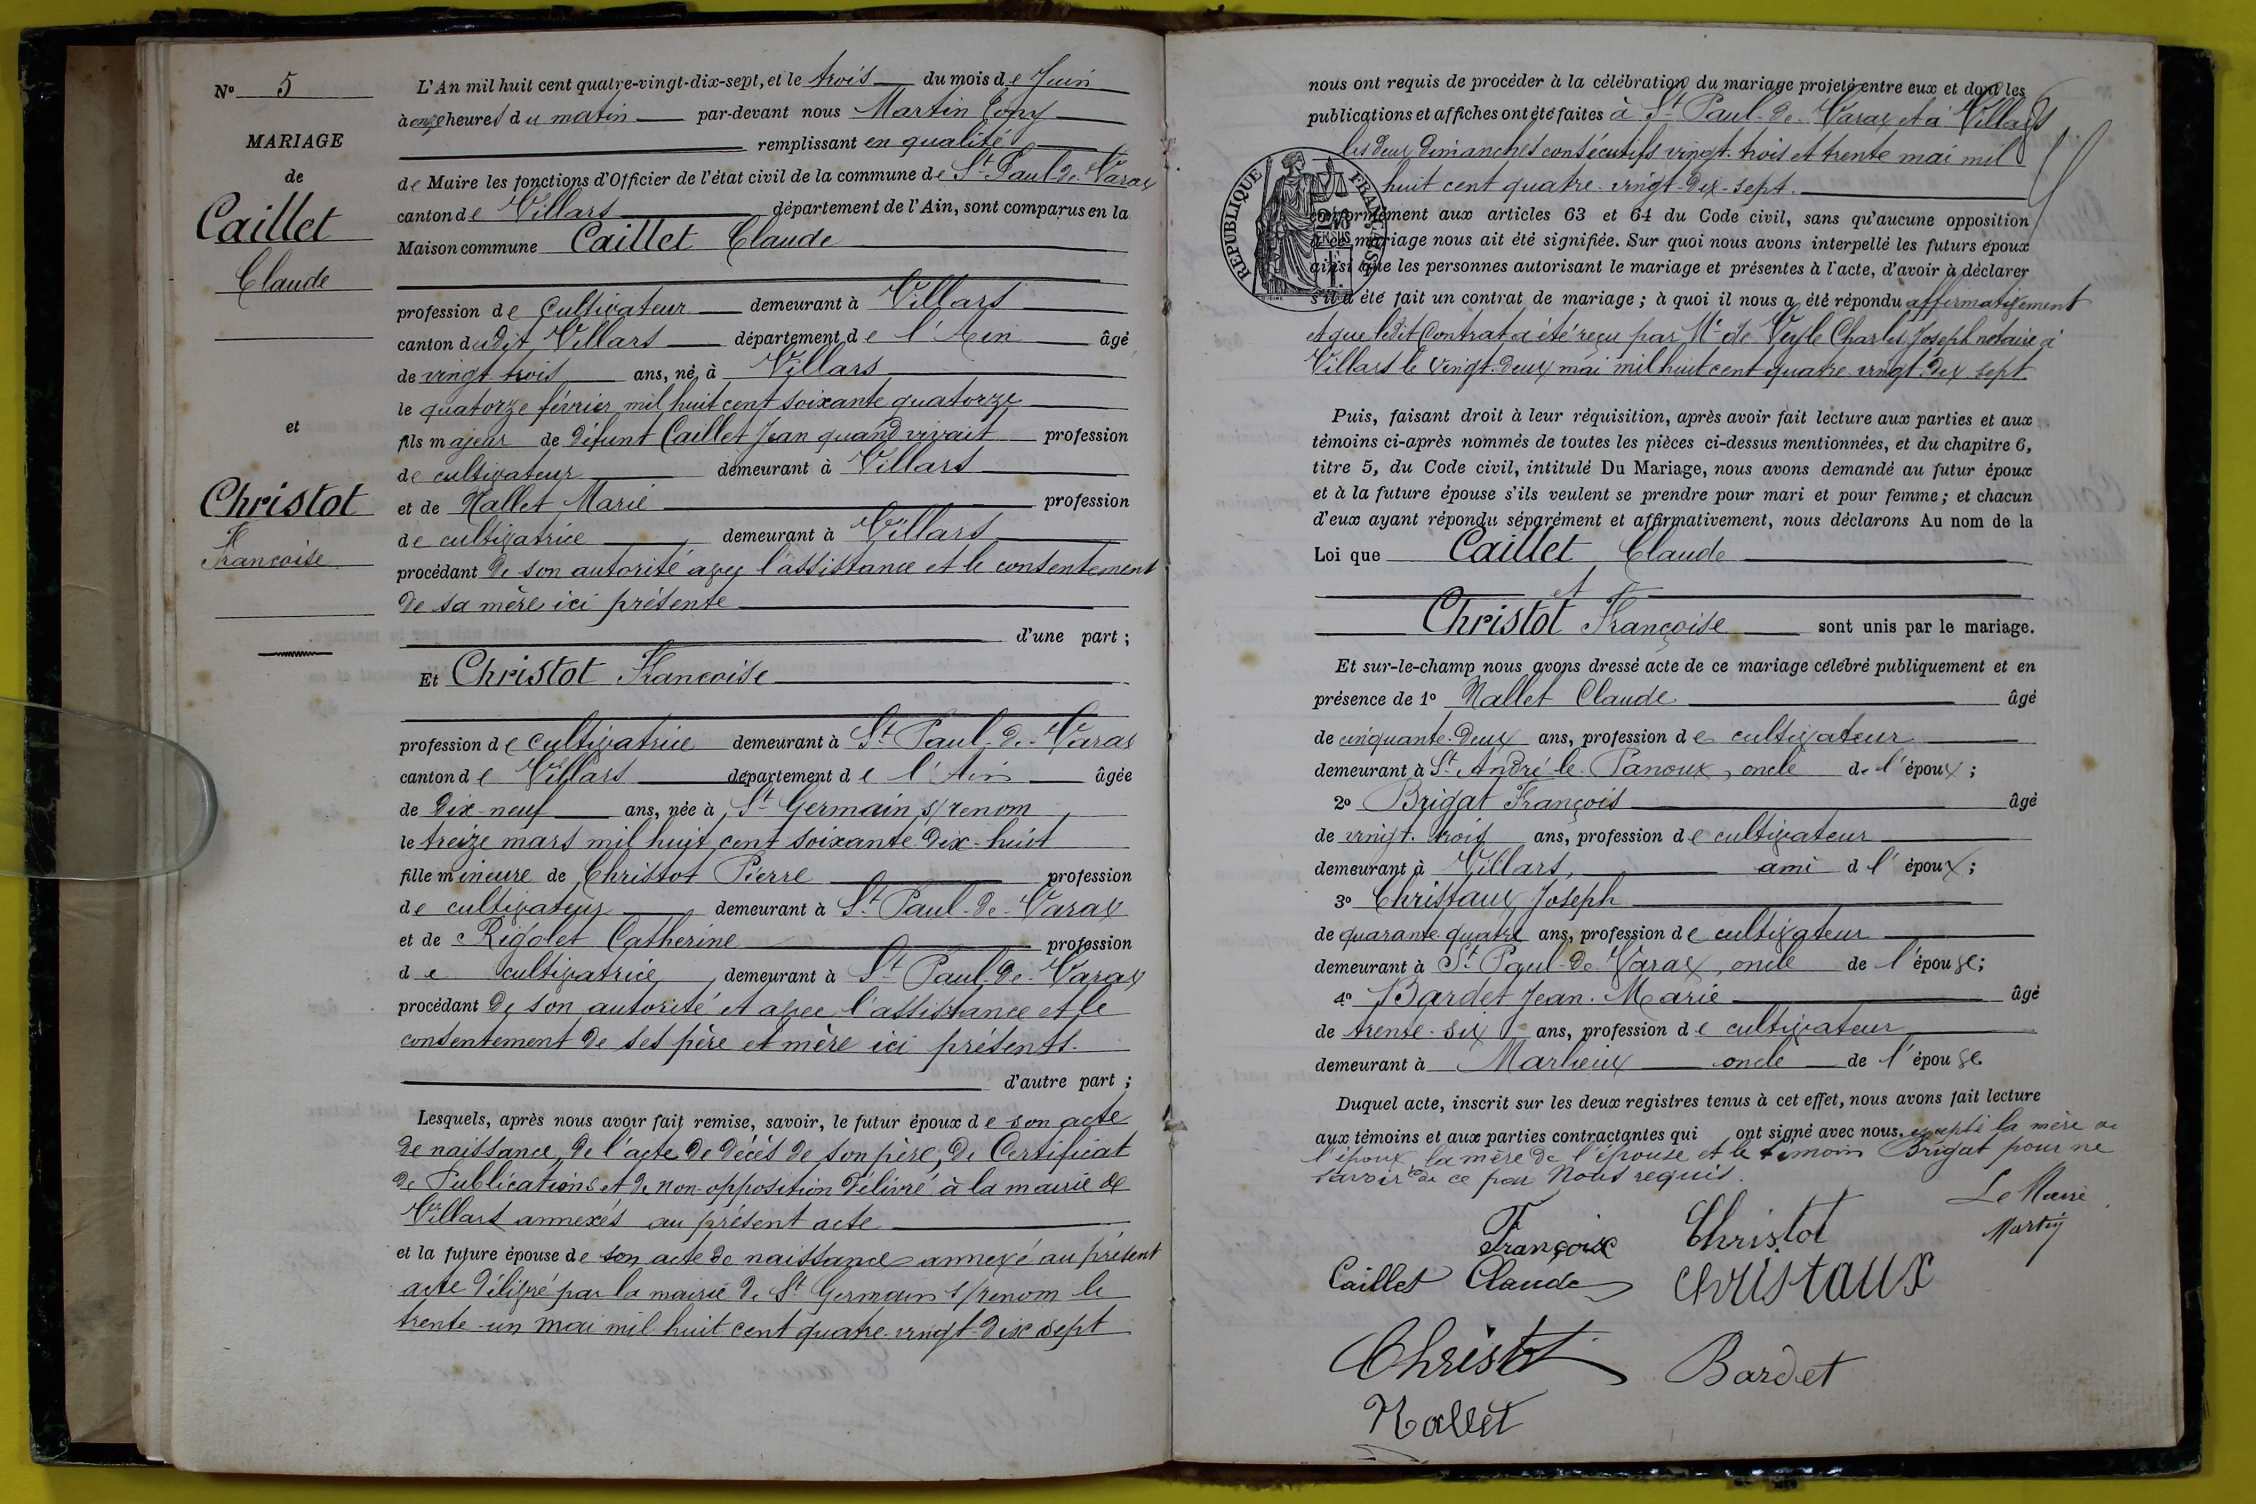 N° 5
MARIAGE
de
Caillet
Claude
et
Christot
Françoise
L'An mil huit cent quatre-vingt-dix-sept, et le trois du mois de Juin
à onze heures du matin par-devant nous Martin Cony
remplissant en qualité
de Maire les fonctions d'Officier de l'état civil de la commune de St Paul de Varax
canton de Villars département de l'Ain, sont comparus en la
Maison commune Caillet Claude
profession de cultivateur demeurant à Villars
canton dudit Villars département de l'Ain âgé
de vingt trois ans, né à Villars
le quatorze février mil huit cent soixante quatorze
fils majeur de défunt Caillet Jean quand vivait profession
de cultivateur demeurant à Villars
et de Nallet Marie profession
de cultivatrice demeurant à Villars
procédant de son autorité avec l'assistance et le consentement
de sa mère ici présente
d'une part ;
Et Christot Françoise
profession de cultivatrice demeurant à St Paul-de-Varax
canton de Villars département de l'Ain âgée
de dix-neuf ans, née à St Germain s/renom
le treize mars mil huit cent soixante-dix-huit
fille mineure de Christot Pierre profession
de cultivateur demeurant à St Paul-de-Varax
et de Rigolet Catherine profession
de cultivatrice demeurant à St Paul-de-Varax
procédant de son autorité et avec l'assistance et le
consentement de ses père et mère ici présents.
d'autre part ;
Lesquels, après nous avoir fait remise, savoir, le futur époux de son acte
de naissance, de l'acte de décès de son père, de Certificat
de Publications et de non-opposition délivré à la mairie de
Villars annexés au présent acte
et la future épouse de son acte de naissance annexé au présent
acte délivré par la mairie de St Germain s/renom le
trente-un mai mil huit cent quatre-vingt-dix sept
nous ont requis de procéder à la célébration du mariage projeté entre eux et dont les
publications et affiches ont été faites à St Paul-de-Varax et à Villars
les deux dimanches consécutifs vingt-trois et trente mai mil
huit cent quatre-vingt-dix-sept.
RÉPUBLIQUE FRANÇAISE
conformément aux articles 63 et 64 du Code civil, sans qu'aucune opposition
à ce mariage nous ait été signifiée. Sur quoi nous avons interpellé les futurs époux
ainsi que les personnes autorisant le mariage et présentes à l'acte, d'avoir à déclarer
s'il a été fait un contrat de mariage ; à quoi il nous a été répondu affirmativement
et que ledit Contrat a été reçu par Me de Veyle Charles Joseph notaire à
Villars le vingt-deux mai mil huit cent quatre-vingt-dix sept
Puis, faisant droit à leur réquisition, après avoir fait lecture aux parties et aux
témoins ci-après nommés de toutes les pièces ci-dessus mentionnées, et du chapitre 6,
titre 5, du Code civil, intitulé Du Mariage, nous avons demandé au futur époux
et à la future épouse s'ils veulent se prendre pour mari et pour femme ; et chacun
d'eux ayant répondu séparément et affirmativement, nous déclarons Au nom de la
Loi que Caillet Claude
et
Christot Françoise sont unis par le mariage.
Et sur-le-champ nous avons dressé acte de ce mariage célébré publiquement et en
présence de 1° Nallet Claude âgé
de cinquante-deux ans, profession de cultivateur
demeurant à St André-le-Panoux, oncle de l'époux ;
2° Brigat François âgé
de vingt-trois ans, profession de cultivateur
demeurant à Villars, ami d l'époux ;
3° Christaux Joseph
de quarante-quatre ans, profession de cultivateur
demeurant à St Paul-de-Varax, oncle de l'épouse ;
4° Bardet Jean-Marie âgé
de trente-six ans, profession de cultivateur
demeurant à Marlieux oncle de l'épouse
Duquel acte, inscrit sur les deux registres tenus à cet effet, nous avons fait lecture
aux témoins et aux parties contractantes qui ont signé avec nous, excepté la mère de
l'époux, la mère de l'épouse et le témoin Brigat pour ne
savoir de ce par Nous requis.
Le Maire
Martin
Françoise Christot
Caillet Claude christaux
Christot Bardet
Nallet